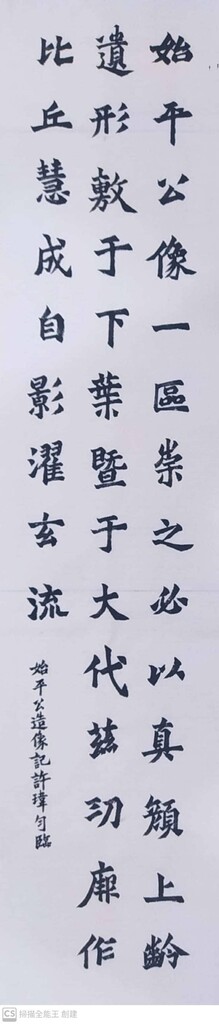 始平公像一區崇之必以真顏上齡
遺形敷于下葉暨于大代茲功廓作
比丘慧成自影濯玄流
始平公造像記許瑋勻臨
CS 掃描全能王 創建